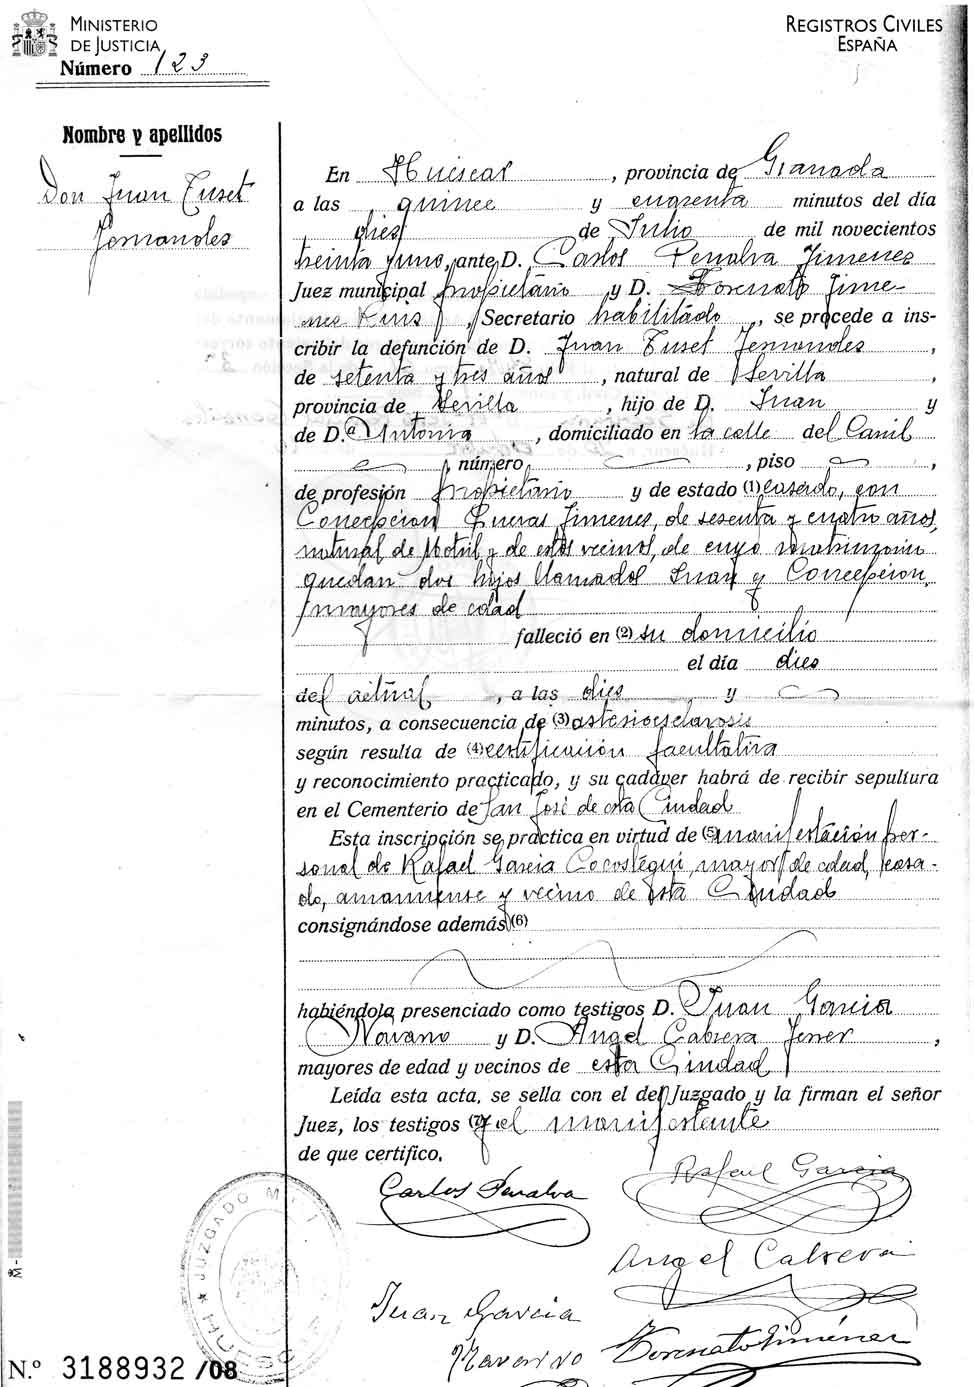 MINISTERIO
DE JUSTICIA
REGISTROS CIVILES
ESPAÑA
Número 123
Nombre y apellidos
Don Juan Tuset
Fernandes
En Huéscar, provincia de Granada
a las quince y cuarenta minutos del día
dies de Julio de mil novecientos
treinta y uno, ante D. Carlos Penalva Jimenes
Juez municipal propietario y D. Torcuato Jime-
nes Ruis, Secretario habilitado, se procede a ins-
cribir la defunción de D. Juan Tuset Fernandes,
de setenta y tres años, natural de Sevilla,
provincia de Sevilla, hijo de D. Juan y
de D.ª Antonia, domiciliado en la calle del Canil
, número , piso ,
de profesión propietario y de estado (1) casado, con
Concepcion Cuevas Jimenes, de sesenta y cuatro años,
natural de Motril y de estos vecinos, de cuyo matrimonio
quedan dos hijos llamados Juan y Concepcion,
mayores de edad
falleció en (2) su domicilio
el día dies
del actual, a las dies y
minutos, a consecuencia de (3) asterioesclarosis
según resulta de (4) certificación facultativa
y reconocimiento practicado, y su cadáver habrá de recibir sepultura
en el Cementerio de San José de esta Ciudad
Esta inscripción se practica en virtud de (5) manifestación per-
sonal de Rafael Garcia mayor de edad, casa-
do, amanuense y vecino de esta Ciudad
consignándose además (6)
habiéndola presenciado como testigos D. Juan Garcia
Navarro y D. Angel Cabrera Ferrer,
mayores de edad y vecinos de esta Ciudad
Leída esta acta, se sella con el del Juzgado y la firman el señor
Juez, los testigos (7) y el manifestante
de que certifico.
Carlos Penalva
Rafael Garcia
Angel Cabrera
Juan Garcia
Navarro
Torcuato Jiménez
JUZGADO MUNI
HUESCAR
N.º 3188932 /08